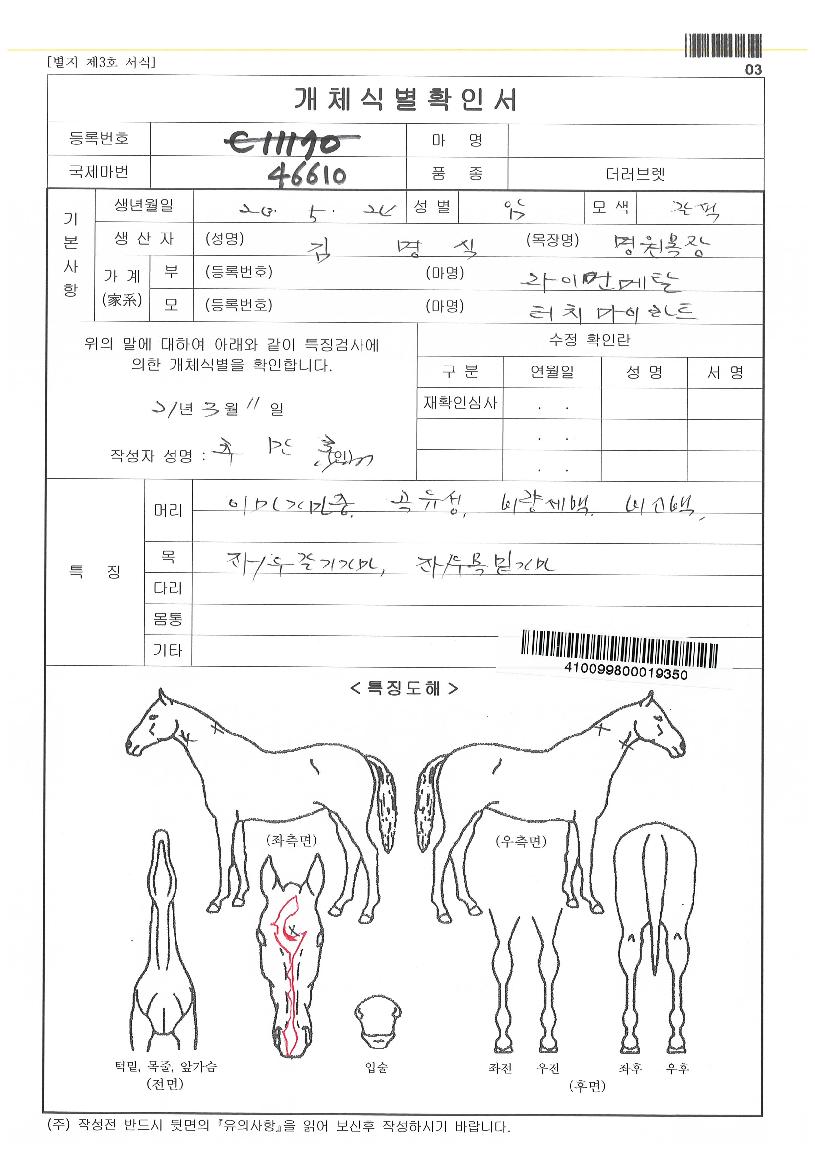 [별지 제3호 서식]
03
개체식별확인서
등록번호 C11190 마 명
국제마번 46610 품 종 더러브렛
기본사항
생년월일 20. 5. 24 성 별 암 모 색 갈색
생 산 사 (성명) 김 명 식 (목장명) 명원목장
가 계 (家系) 부 (등록번호) (마명) 라이언메탈
모 (등록번호) (마명) 터치마이하트
위의 말에 대하여 아래와 같이 특징검사에
의한 개체식별을 확인합니다.
21년 3월 11일
작성자 성명 : (인)
수정 확인란
구 분 연월일 성 명 서 명
재확인심사 . .
. .
. .
특 징
머리 이마가마중. 곡유성. 비량세백. 비소백.
목 좌/우줄기가마, 좌/우목밑가마
다리
몸통
기타
410099800019350
< 특징도해 >
(좌측면) (우측면)
턱밑, 목줄, 앞가슴 입술 좌전 우전 좌후 우후
(전면) (후면)
(주) 작성전 반드시 뒷면의 『유의사항』을 읽어 보신후 작성하시기 바랍니다.